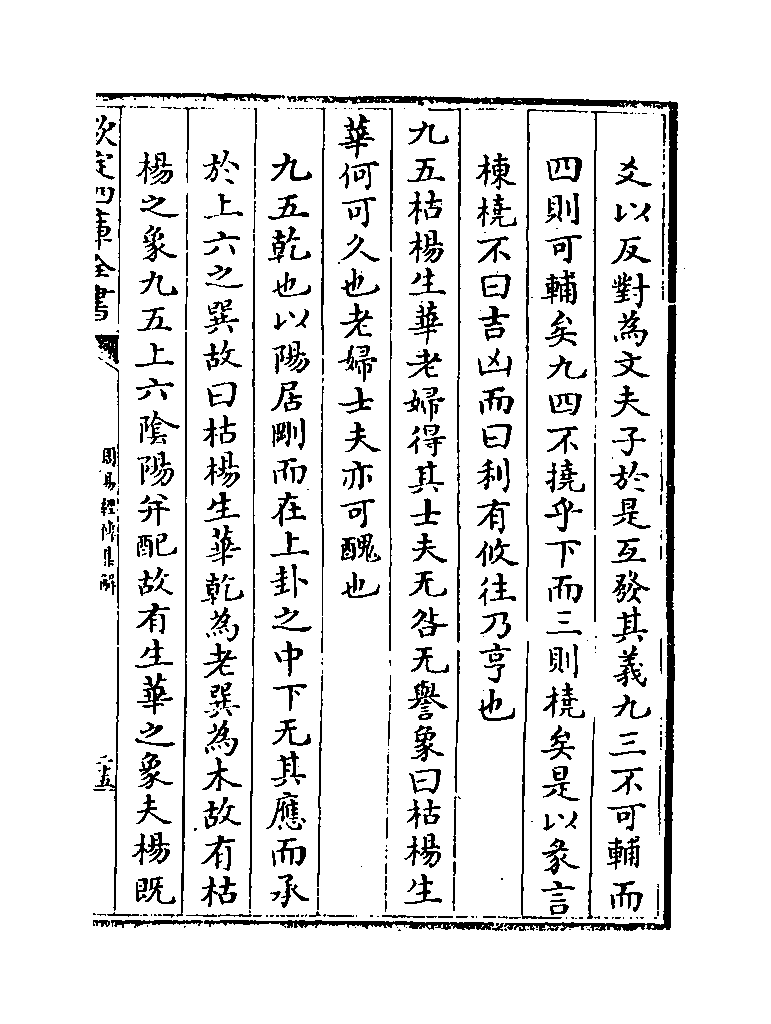 爻以反對為文夫子於是互發其義九三不可輔而
四則可輔矣九四不撓乎下而三則橈矣是以彖言
棟橈不曰吉凶而曰利有攸往乃亨也
九五枯楊生華老婦得其士夫无咎无譽象曰枯楊生
華何可久也老婦士夫亦可醜也
九五乾也以陽居剛而在上卦之中下无其應而承
於上六之巽故曰枯楊生華乾為老巽為木故有枯
楊之象九五上六陰陽并配故有生華之象夫楊既
欽定四庫全書
周易經傳集解